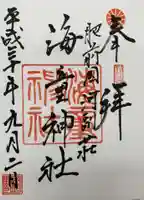 奉拝
肥前国
海童神社
平成三十年九月二日